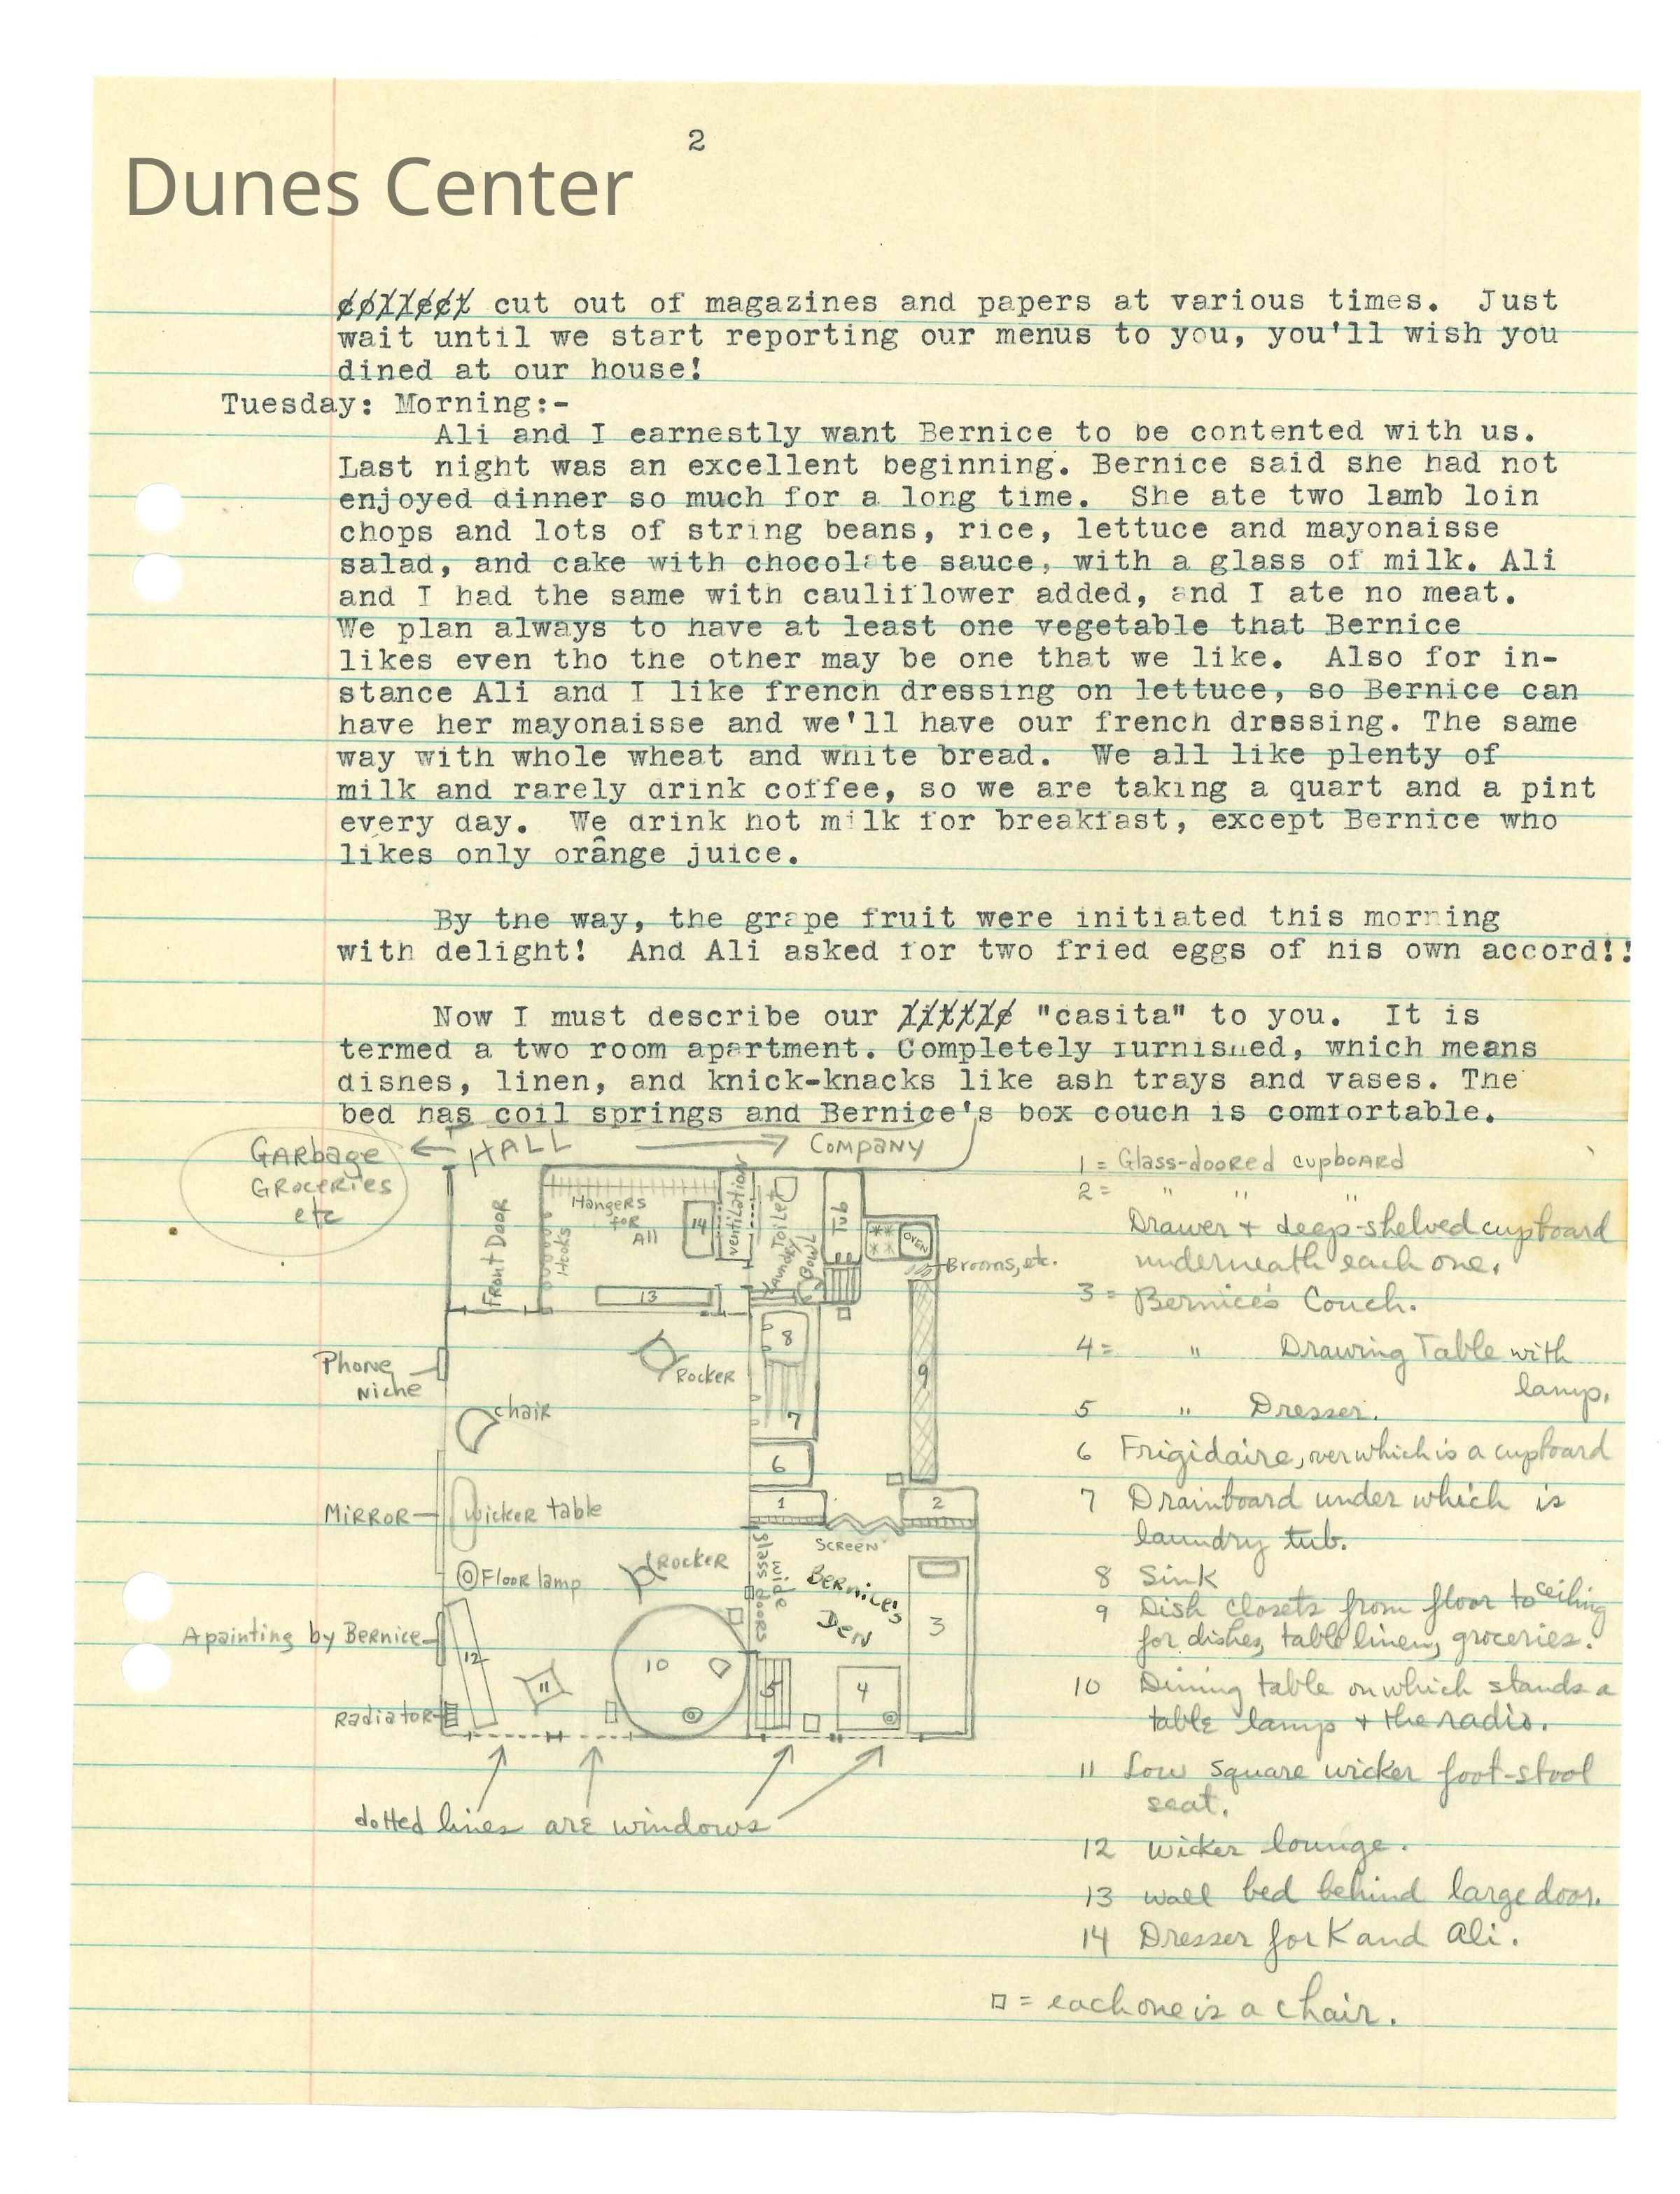 2
Dunes Center
collect cut out of magazines and papers at various times.  Just
wait until we start reporting our menus to you, you'll wish you
dined at our house!
Tuesday: Morning:-
Ali and I earnestly want Bernice to be contented with us.
Last night was an excellent beginning. Bernice said she had not
enjoyed dinner so much for a long time.  She ate two lamb loin
chops and lots of string beans, rice, lettuce and mayonaisse
salad, and cake with chocolate sauce, with a glass of milk. Ali
and I had the same with cauliflower added, and I ate no meat.
We plan always to have at least one vegetable that Bernice
likes even tho the other may be one that we like.  Also for in-
stance Ali and I like french dressing on lettuce, so Bernice can
have her mayonaisse and we'll have our french drsssing. The same
way with whole wheat and white bread.  We all like plenty of
milk and rarely drink coffee, so we are taking a quart and a pint
every day.  We drink hot milk for breakfast, except Bernice who
likes only orange juice.
By the way, the grape fruit were initiated this morning
with delight!  And Ali asked for two fried eggs of his own accord!!
Now I must describe our little "casita" to you.  It is
termed a two room apartment. Completely furnished, which means
dishes, linen, and knick-knacks like ash trays and vases. The
bed has coil springs and Bernice's box couch is comfortable.
Garbage
Groceries
etc
← HALL → Company
Front Door
Hooks
Hangers
for
All
14
ventilation
Toilet
Laundry
Bowl
Tub
oven
Brooms, etc.
13
8
Rocker
Phone
Niche
chair
7
9
6
Mirror
wicker table
1
2
Screen
Floor lamp
Rocker
wide
glass doors
Bernice's
Den
3
A painting by Bernice
12
11
10
5
4
Radiator
dotted lines are windows
1 = Glass-doored cupboard
2 = " " "
Drawer + deep-shelved cupboard
underneath each one.
3 = Bernice's Couch.
4 = " Drawing Table with
lamp.
5 " Dresser.
6 Frigidaire, over which is a cupboard
7 Drainboard under which is
laundry tub.
8 Sink
9 Dish closets from floor to ceiling
for dishes, table linen, groceries.
10 Dining table on which stands a
table lamp + the radio.
11 Low square wicker foot-stool
seat.
12 wicker lounge.
13 wall bed behind large door.
14 Dresser for K and Ali.
□ = each one is a chair.